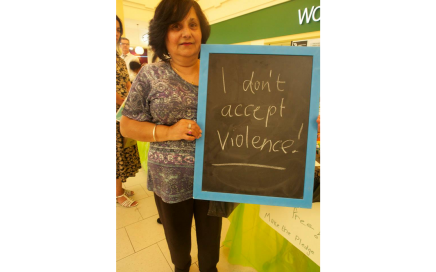 WO
I don't
accept
violence!
Make the Pledge